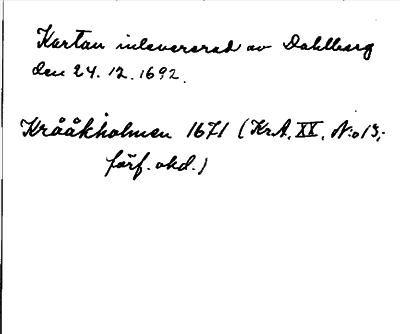 Kartan inlevererad av Dahlberg
den 24. 12. 1692.
Krååkholmen 1671 (Kr.A. XX. N:o 13;
förf. okd.)